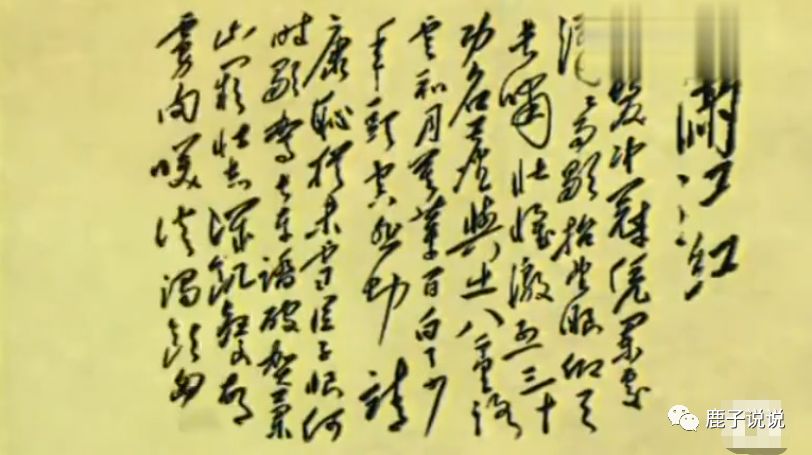 滿江红
髮冲冠凭阑处
潇潇雨歇抬望眼仰天
长啸壮怀激烈三十
功名尘與土八千里路
雲和月莫等闲白了少
年头空悲切 靖
康耻犹未雪臣子恨何
时驾长车踏破贺兰
山缺壮志飢餐胡
虏肉笑谈渴饮匈
鹿子说说